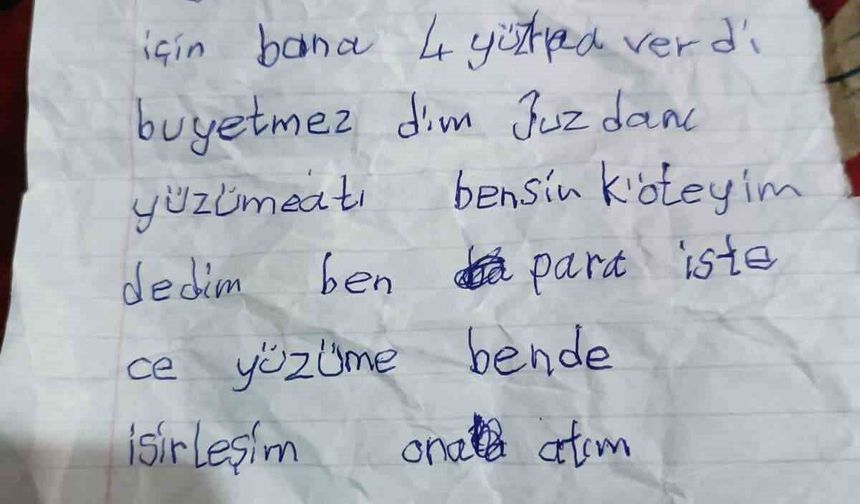 için bana 4 yüz verdi
buyetmez dim Juzdanı
yüzümeatı bensin köteyim
dedim ben para iste
ce yüzüme bende
isirleşim ona atım